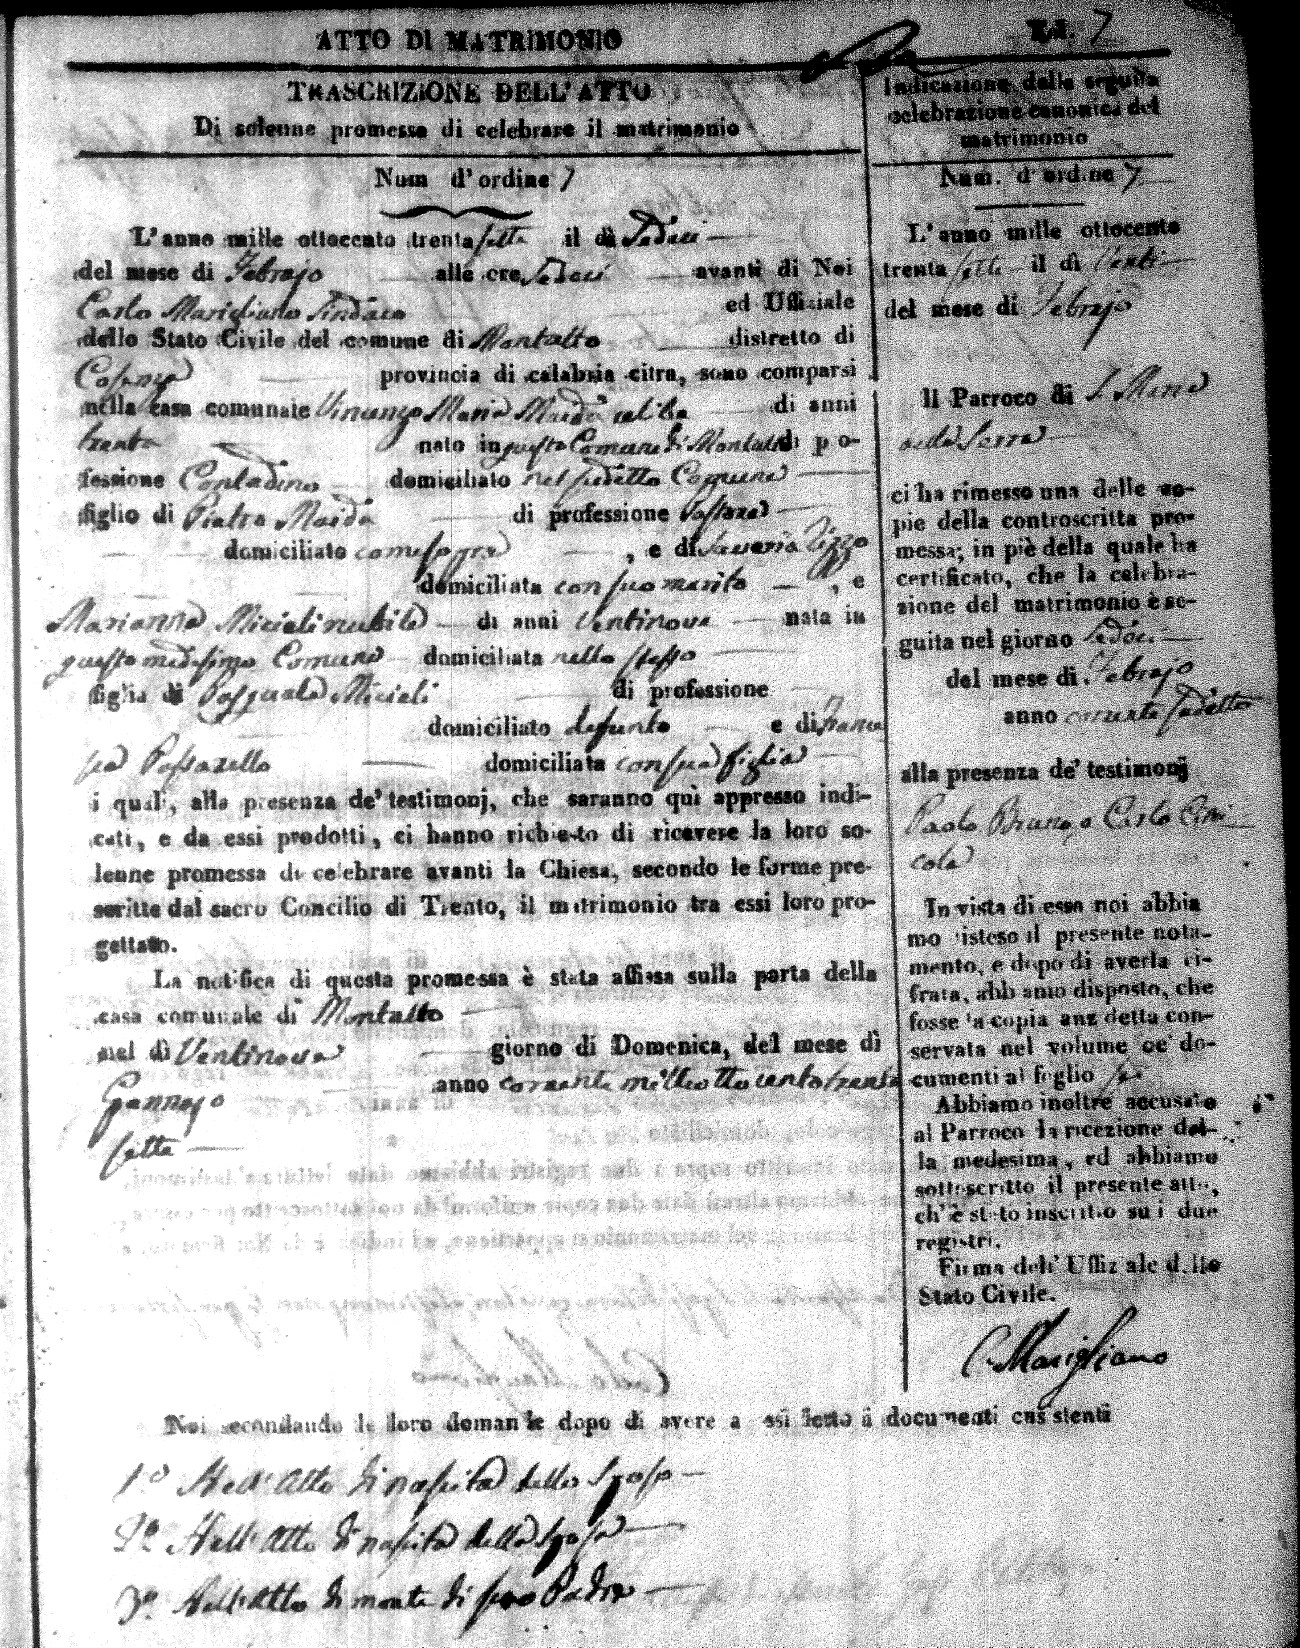 ATTO DI MATRIMONIO
7
TRASCRIZIONE DELL'ATTO
Di solenne promessa di celebrare il matrimonio
Num d'ordine 7
L'anno mille ottoccento trenta sette il dì Sedeci
del mese di Febrajo alle ore Sedeci avanti di Noi
Carlo Marigliano Sindaco ed Uffiziale
dello Stato Civile del comune di Montalto distretto di
Cosenza provincia di calabria citra, sono comparsi
nella casa comunale Vincenzo Maria Maida celibe di anni
trenta nato in questo Comune di Montalto di pro-
fessione Contadino domiciliato nel sudetto Comune
figlio di Pietro Maida di professione
domiciliato come sopra, e di Saveria Rizzo
domiciliata con suo marito, e
Marianna Micieli nubile di anni Ventinove nata in
questo medesimo Comune domiciliata nello stesso
figlia di Pasquale Micieli di professione
domiciliato defunto e di France
sca Passarello domiciliata con sua figlia
i quali, alla presenza de' testimonj, che saranno quì appresso indi-
cati, e da essi prodotti, ci hanno richiesto di ricevere la loro so-
lenne promessa di celebrare avanti la Chiesa, secondo le forme pre-
scritte dal sacro Concilio di Trento, il matrimonio tra essi loro pro-
gettato.
La notifica di questa promessa è stata affissa sulla porta della
casa comunale di Montalto
nel dì Ventinove giorno di Domenica, del mese di
Gennajo anno corrente mille ottocento trenta
sette
Noi secondando le loro domande dopo di avere a essi letto i documenti consistenti
1.o Nell'Atto di nascita dello Sposo
2.o Nell'Atto di nascita della Sposa
3.o Nell'Atto di morte di suo Padre
Indicazione della seguita
celebrazione canonica del
matrimonio
Num. d'ordine 7
L'anno mille ottocento
trenta sette il dì Venti
del mese di Febrajo
Il Parroco di S. Maria
della Serra
ci ha rimesso una delle co-
pie della controscritta pro-
messa; in piè della quale ha
certificato, che la celebra-
zione del matrimonio è se-
guita nel giorno Sedeci
del mese di Febrajo
anno corrente sudetto
alla presenza de' testimonj
Paolo Bruno e Carlo Cini
cola
In vista di essa noi abbia
mo disteso il presente nota-
mento, e dopo di averla ci-
frata, abbiamo disposto, che
fosse la copia anzidetta con-
servata nel volume de' do-
cumenti al foglio
Abbiamo inoltre accusato
al Parroco la ricezione del-
la medesima, ed abbiamo
sottoscritto il presente atto,
ch'è stato inscritto su i due
registri.
Firma dell' Uffiziale dello
Stato Civile.
C. Marigliano